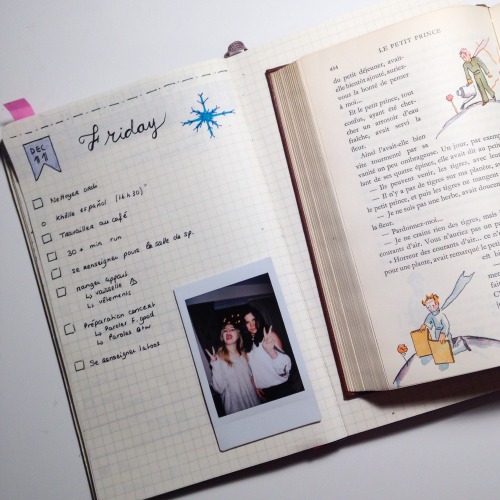 DEC
11
Friday
Nettoyer
Khôlle español (16h30)
Travailler au café
30+ min run
se renseigner pour la salle de sp.
ranger appart
↳ vaisselle
↳ vêtements
Préparation concert
↳ Paroles F. good
↳ Paroles
Se renseigner
414
LE PETIT PRINCE
du petit déjeuner, avait-
elle bientôt ajouté, auriez-
vous la bonté de penser
à moi...
Et le petit prince, tout
confus, ayant été cher-
cher un arrosoir d'eau
fraîche, avait servi la
fleur.
Ainsi l'avait-elle bien
vite tourmenté par sa
vanité un peu ombrageuse. Un jour, par exemp
lant de ses quatre épines, elle avait dit au petit
— Ils peuvent venir, les tigres, avec leurs
— Il n'y a pas de tigres sur ma planète, av
le petit prince, et puis les tigres ne mangent
— Je ne suis pas une herbe, avait douce
la fleur.
— Pardonnez-moi...
— Je ne crains rien des tigres, mais
courants d'air. Vous n'auriez pas un p
« Horreur des courants d'air... ce n'
pour une plante, avait remarqué le
est bi